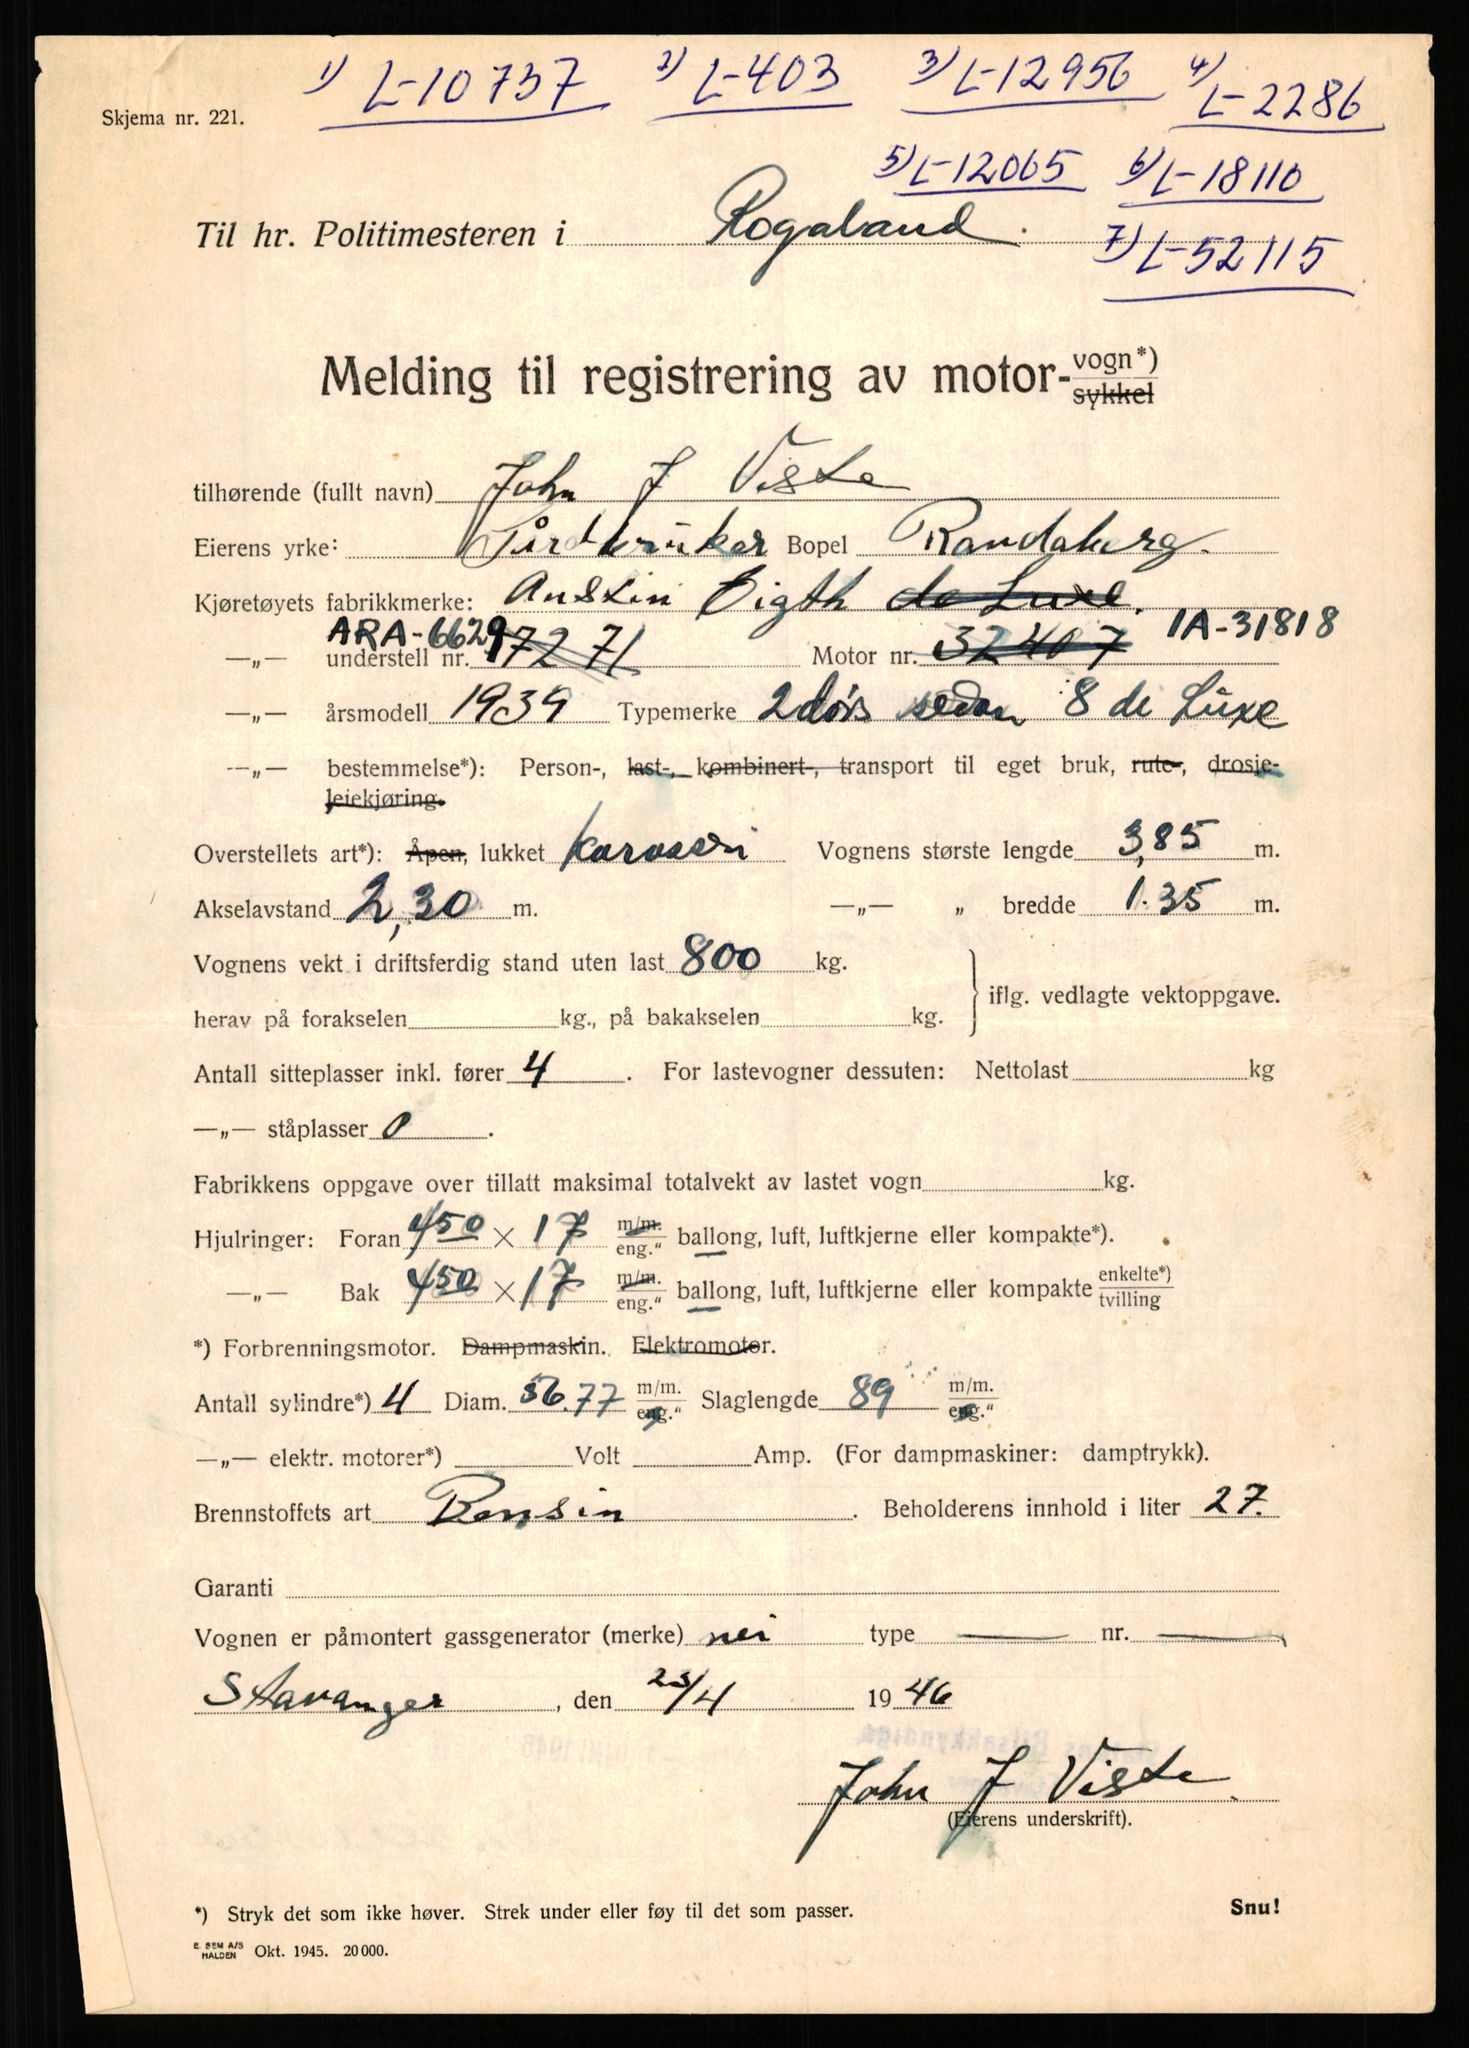 1) L-10737 2) L-403 3) L-12956 4) L-2286
Skjema nr. 221.
5) L-12065 6) L-18110
Til hr. Politimesteren i Rogaland.
7) L-52115
Melding til registrering av motor- vogn*) sykkel
tilhørende (fullt navn) John J Viste
Eierens yrke: Gårdbruker Bopel Randaberg.
Kjøretøyets fabrikkmerke: Austin Eigth de Luxe.
ARA-6629 1A-31818
—„— understell nr. 17271 Motor nr. 32407
—„— årsmodell 1939 Typemerke 2 dørs sedan 8 de Luxe
—„— bestemmelse*): Person-, last-, kombinert-, transport til eget bruk, rute-, drosje-
leiekjøring.
Overstellets art*): Åpen, lukket karosseri Vognens største lengde 3,85 m.
Akselavstand 2,30 m. —„— „ bredde 1.35 m.
Vognens vekt i driftsferdig stand uten last 800 kg.
iflg. vedlagte vektoppgave.
herav på forakselen kg., på bakakselen kg.
Antall sitteplasser inkl. fører 4. For lastevogner dessuten: Nettolast kg
—„— ståplasser 0.
Fabrikkens oppgave over tillatt maksimal totalvekt av lastet vogn kg.
Hjulringer: Foran 450 × 17 m/m. eng." ballong, luft, luftkjerne eller kompakte*).
—„— Bak 450 × 17 m/m. eng." ballong, luft, luftkjerne eller kompakte enkelte*) tvilling
*) Forbrenningsmotor. Dampmaskin. Elektromotor.
Antall sylindre*) 4 Diam. 56.77 m/m. eng." Slaglengde 89 m/m. eng."
—„— elektr. motorer*) Volt Amp. (For dampmaskiner: damptrykk).
Brennstoffets art Bensin. Beholderens innhold i liter 27.
Garanti
Vognen er påmontert gassgenerator (merke) nei type — nr. —
Stavanger, den 23/4 1946
John J Viste
(Eierens underskrift).
*) Stryk det som ikke høver. Strek under eller føy til det som passer. Snu!
E. SEM A/S HALDEN Okt. 1945. 20000.